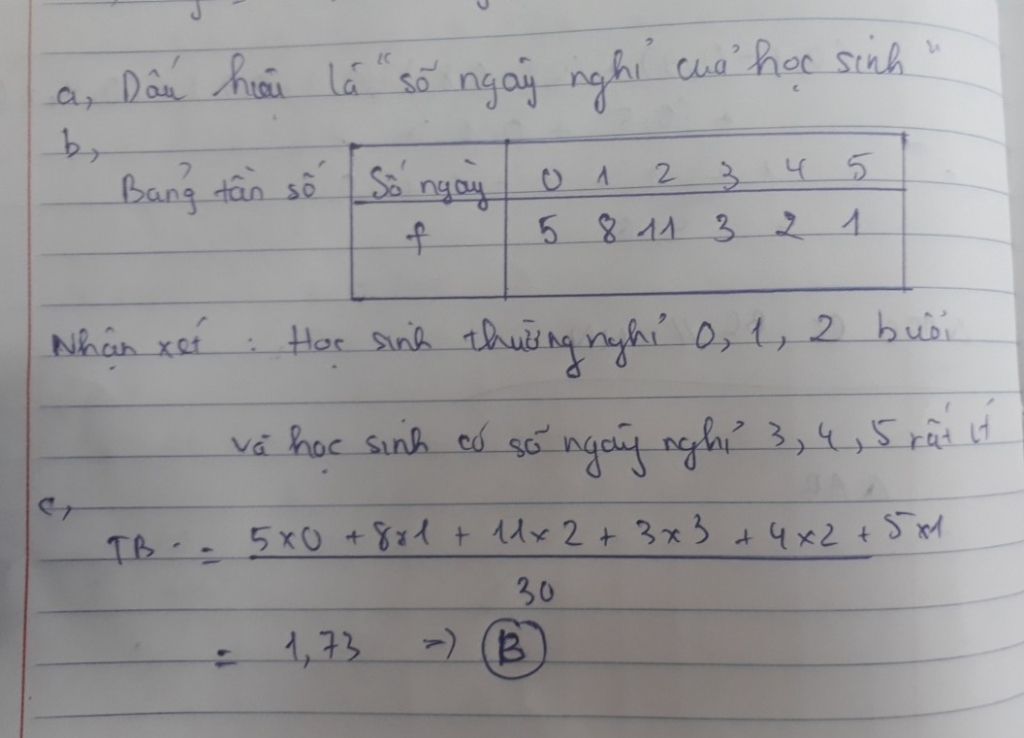 a, Dấu hiệu là "số ngày nghỉ của học sinh"
b,
Bảng tần số Số ngày 0 1 2 3 4 5
f 5 8 11 3 2 1
Nhận xét : Học sinh thường nghỉ 0, 1, 2 buổi
và học sinh có số ngày nghỉ 3, 4, 5 rất ít
c,
TB = 5x0 + 8x1 + 11x2 + 3x3 + 4x2 + 5x1
30
= 1,73 => B